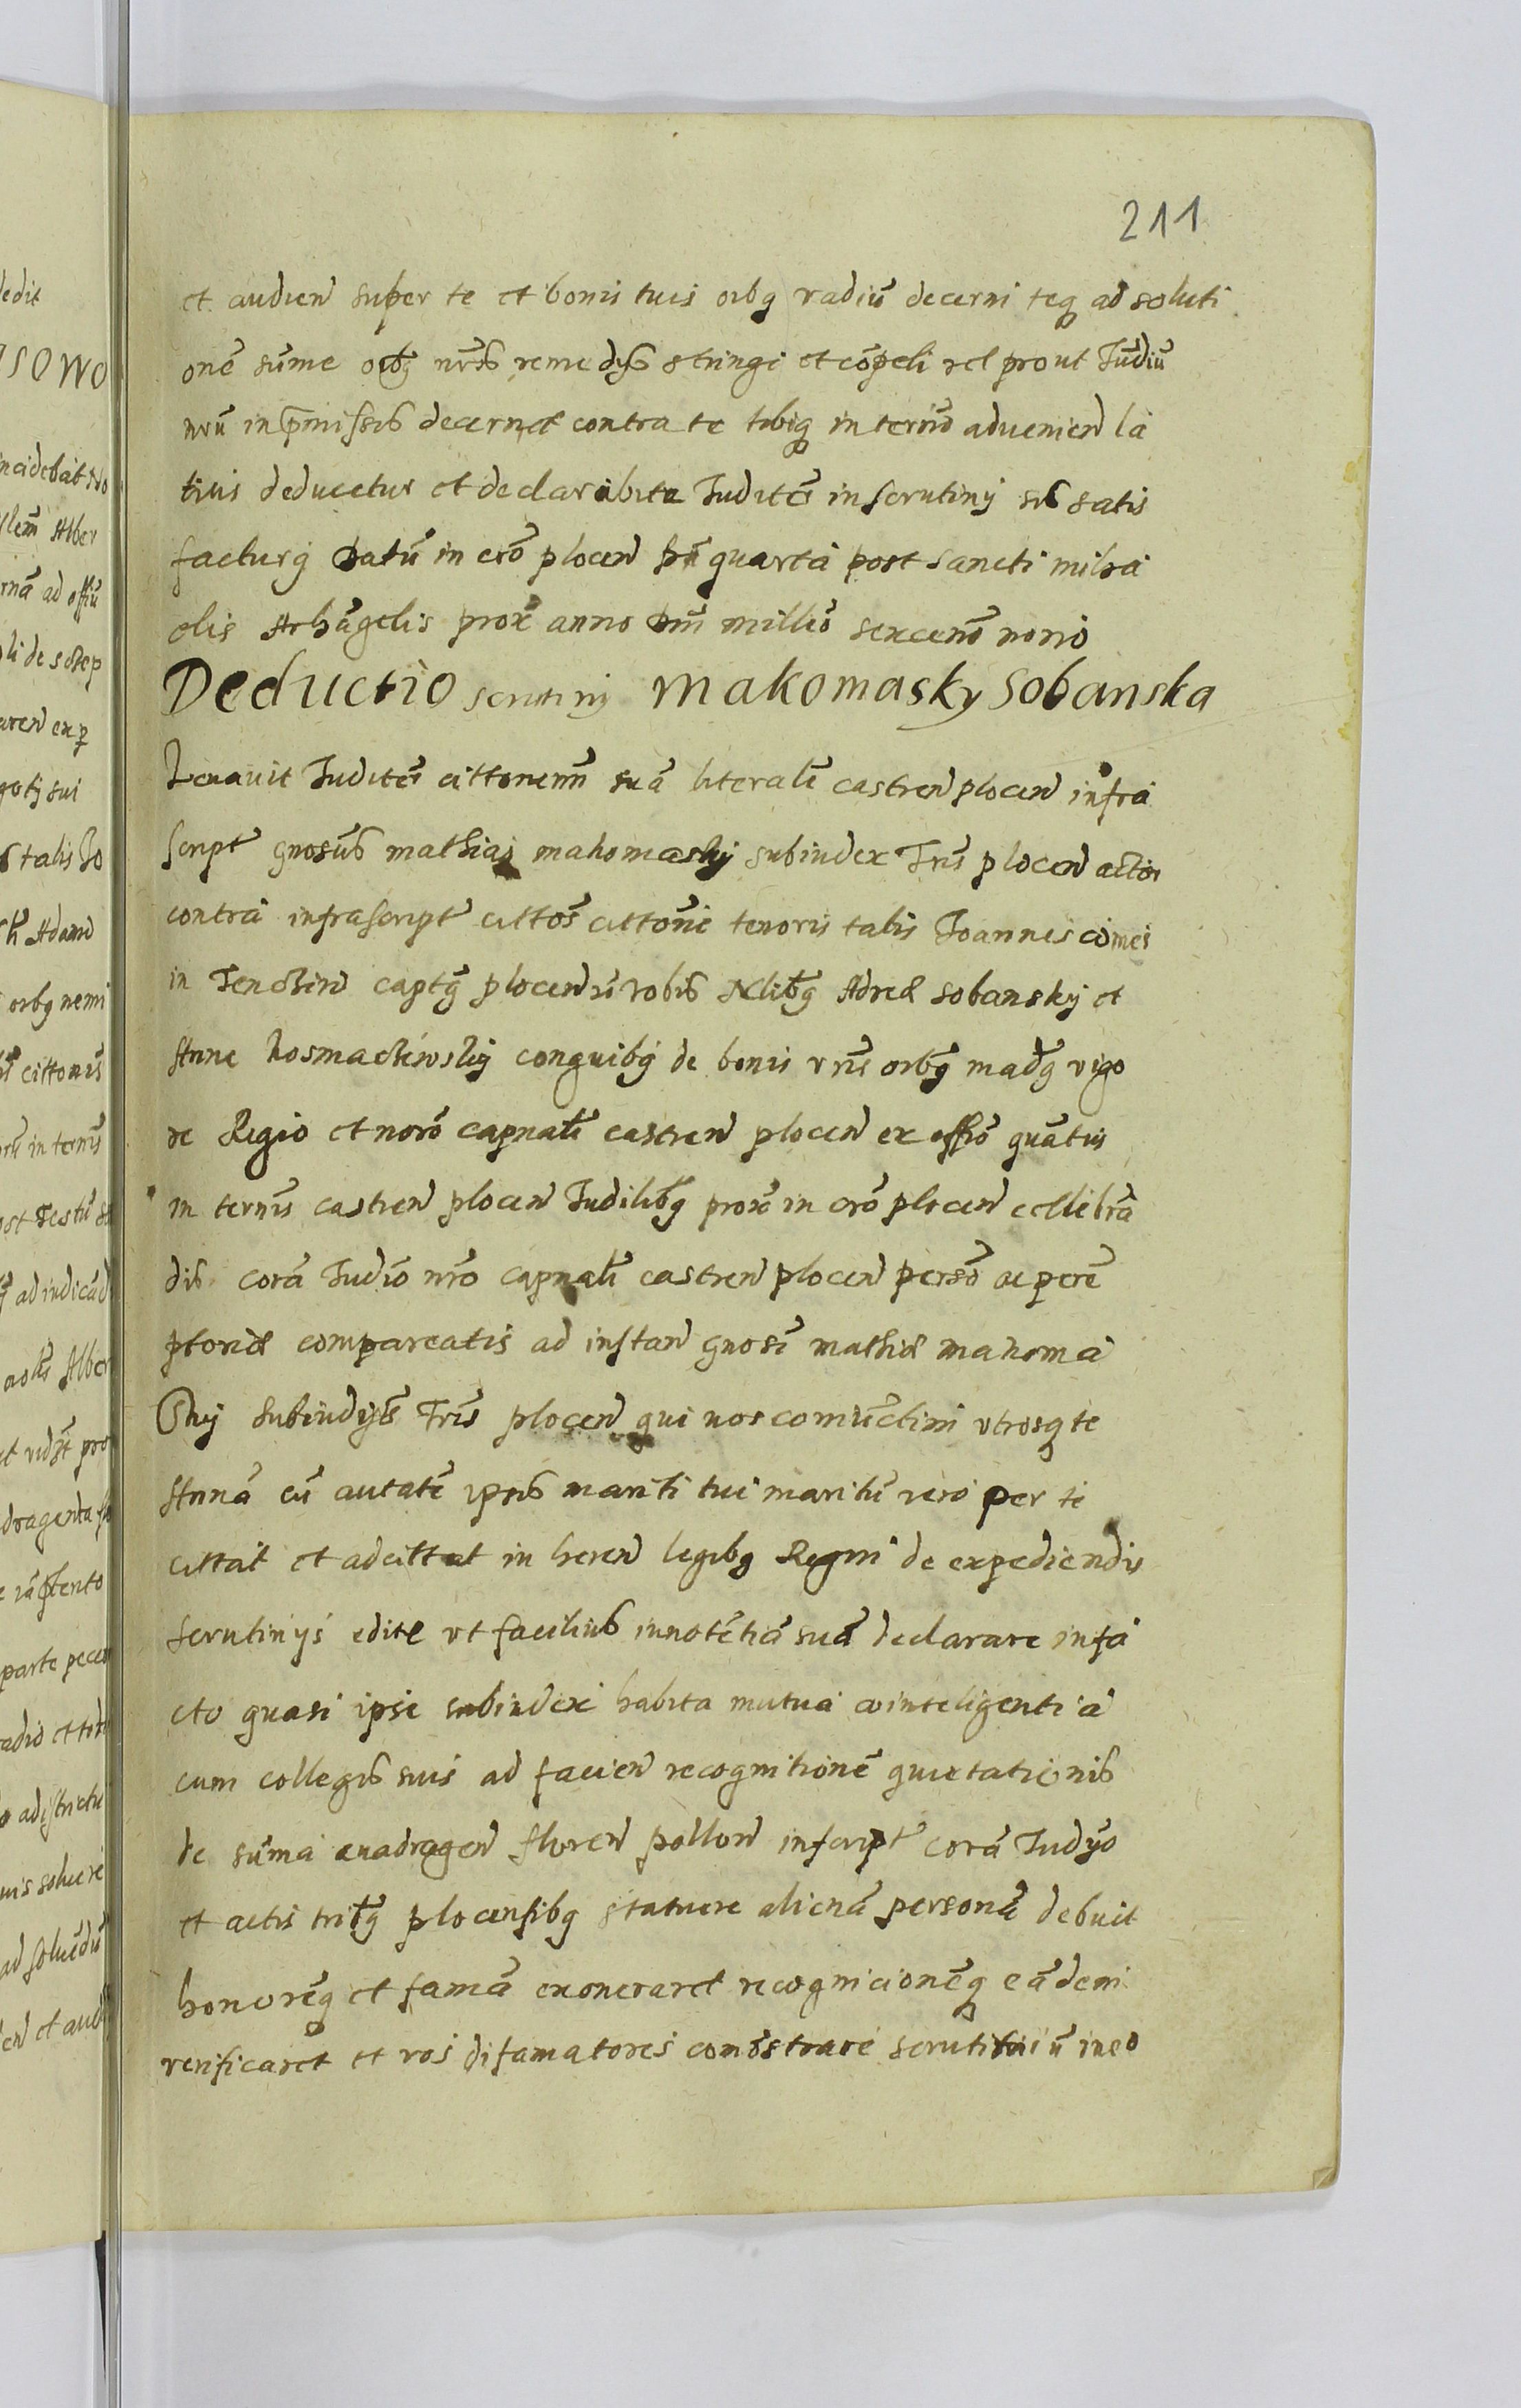 211
et audien super te et bonis tuis oibq vadiū decerni teq ad soluti
onē sūme oibq nrīs remedys stringi et cōpeli vel prout Iudiū
nrū in pmissis decernet contra te tibiq in termō aduenien la
tius deducetur et declarabitr Iuditer in scrutiny sis satis
facturq Datū in crō plocen fr̄ quarta post sancti micha
elis Archāgelis prox̄ anno Dni millīo sexcenō nono
Deductio scrutiny Makomasky Sobanska
Leuauit Iuditer cittonem̄ suā literalē castren plocen infra
script gnosūs mathias makomasky subiudex Tris plocen actor
contra infrascript cittos̄ cittonē tenoris talis Joannes comes
in Tenczin captq plocen vobis Nlibq Adreæ Sobansky et
Anne kosmaczewsky coniugibq de bonis vris oibq madq vigo
re Regio et nrō capnalī castren plocen ex offiō quātus
in termīs castren plocen Iudilibq prox̄ in crō plocen cellebrā
dis corā Iudiō nrō capnalī castren plocen persō ac perē
ptoriæ compareatis ad instan gnosī mathiæ makoma
sky subiudycis Tris plocen qui vos coniūctim vtrosq te
Annā cū autatē ipsius mariti tui maritū vero per te
cittat et adcittat in heren legibq Regni de expediendis
scrutinys edite vt facilius innotētiā suā declarare in fa
cto quasi ipse subiudex habita mutua cointeligentia
cum collegis suis ad facien recognitionē quietationis
de sūma quadragen floren pollon inscript corā Iudyo
et actis tritq plocensibq statuere alienā personā debuit
honorēq et famā exoneraret recognicionēq eādem
verificaret et vos difamatores comōstrare scrutiniū in eo